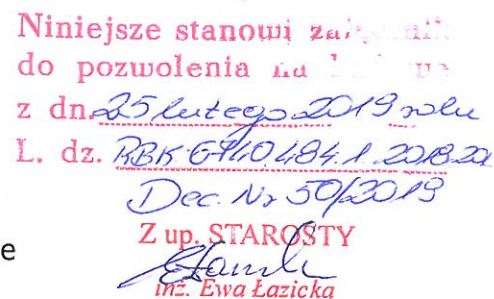 Niniejsze stanowi załącznik
do pozwolenia na budowę
z dn. 25 lutego 2019 roku
L. dz. RBK 6740.484.1.2018.20
Dec. Nr 50/2019
Z up. STAROSTY
e
inż. Ewa Łazicka